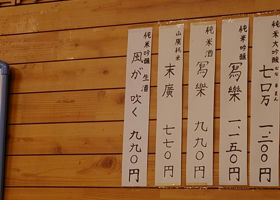 純米大吟醸
七口万
純米吟醸
寫樂 一、一五〇円
純米酒
寫樂 九九〇円
山廃純米
末廣 七七〇円
純米吟醸 生酒
風が吹く 九九〇円